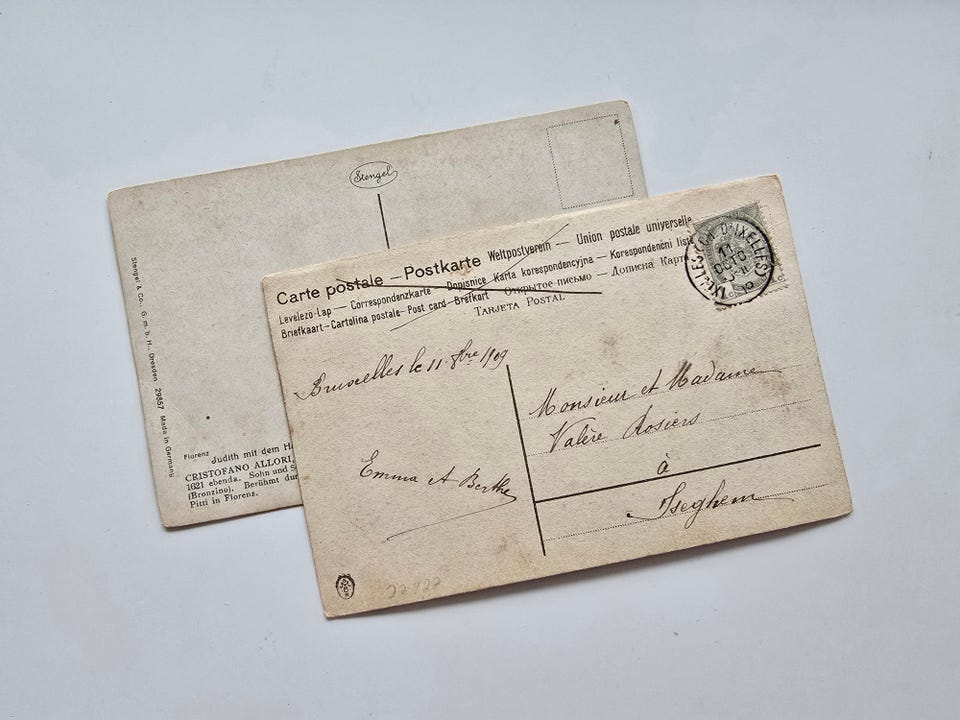 Stengel
Stengel & Co., G. m. b. H., Dresden 29857 Made in Germany
Florenz
Judith mit dem H
CRISTOFANO ALLORI,
1621 ebenda. Sohn und S
(Bronzino). Berühmt du
Pitti in Florenz.
Carte postale – Postkarte Weltpostverein – Union postale universelle
Levelező-Lap – Correspondenzkarte Dopisnice Karta korespondencyjna – Korespondenční liste
Briefkaart – Cartolina postale – Post card – Brefkort Открытое письмо – Дописна Карт
TARJETA POSTAL
IXELLES
11
(D'IXELLES)
Bruxelles le 11 8bre 1909
Emma et Berthe
Monsieur et Madame
Valère Rosiers
à
Iseghem